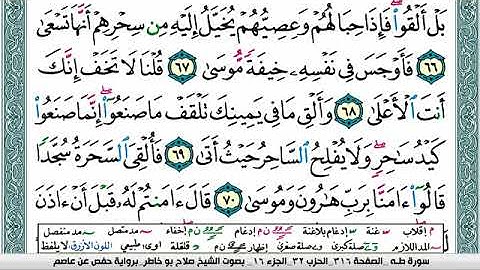 بَلْ أَلْقُوا۟ فَإِذَا حِبَالُهُمْ وَعِصِيُّهُمْ يُخَيَّلُ إِلَيْهِ مِن سِحْرِهِمْ أَنَّهَا تَسْعَىٰ
٦٦ فَأَوْجَسَ فِى نَفْسِهِۦ خِيفَةً مُّوسَىٰ ٦٧ قُلْنَا لَا تَخَفْ إِنَّكَ
أَنتَ ٱلْأَعْلَىٰ ٦٨ وَأَلْقِ مَا فِى يَمِينِكَ تَلْقَفْ مَا صَنَعُوٓا۟ إِنَّمَا صَنَعُوا۟
كَيْدُ سَٰحِرٍ وَلَا يُفْلِحُ ٱلسَّاحِرُ حَيْثُ أَتَىٰ ٦٩ فَأُلْقِىَ ٱلسَّحَرَةُ سُجَّدًا
قَالُوٓا۟ ءَامَنَّا بِرَبِّ هَٰرُونَ وَمُوسَىٰ ٧٠ قَالَ ءَامَنتُمْ لَهُۥ قَبْلَ أَنْ ءَاذَنَ
م إقلاب غنة إدغام بلاغنة ن م إدغام ن م إخفاء مد متصل مد منفصل
المد اللازم صلة كبرى صلة صغرى إظهار ن م قلقلة طبيعي اللون الأزرق لا يلفظ
سورة طـه_ الصفحة ٣١٦_ الحزب ٣٢_ الجزء ١٦_ بصوت الشيخ صلاح بو خاطر_ برواية حفص عن عاصم